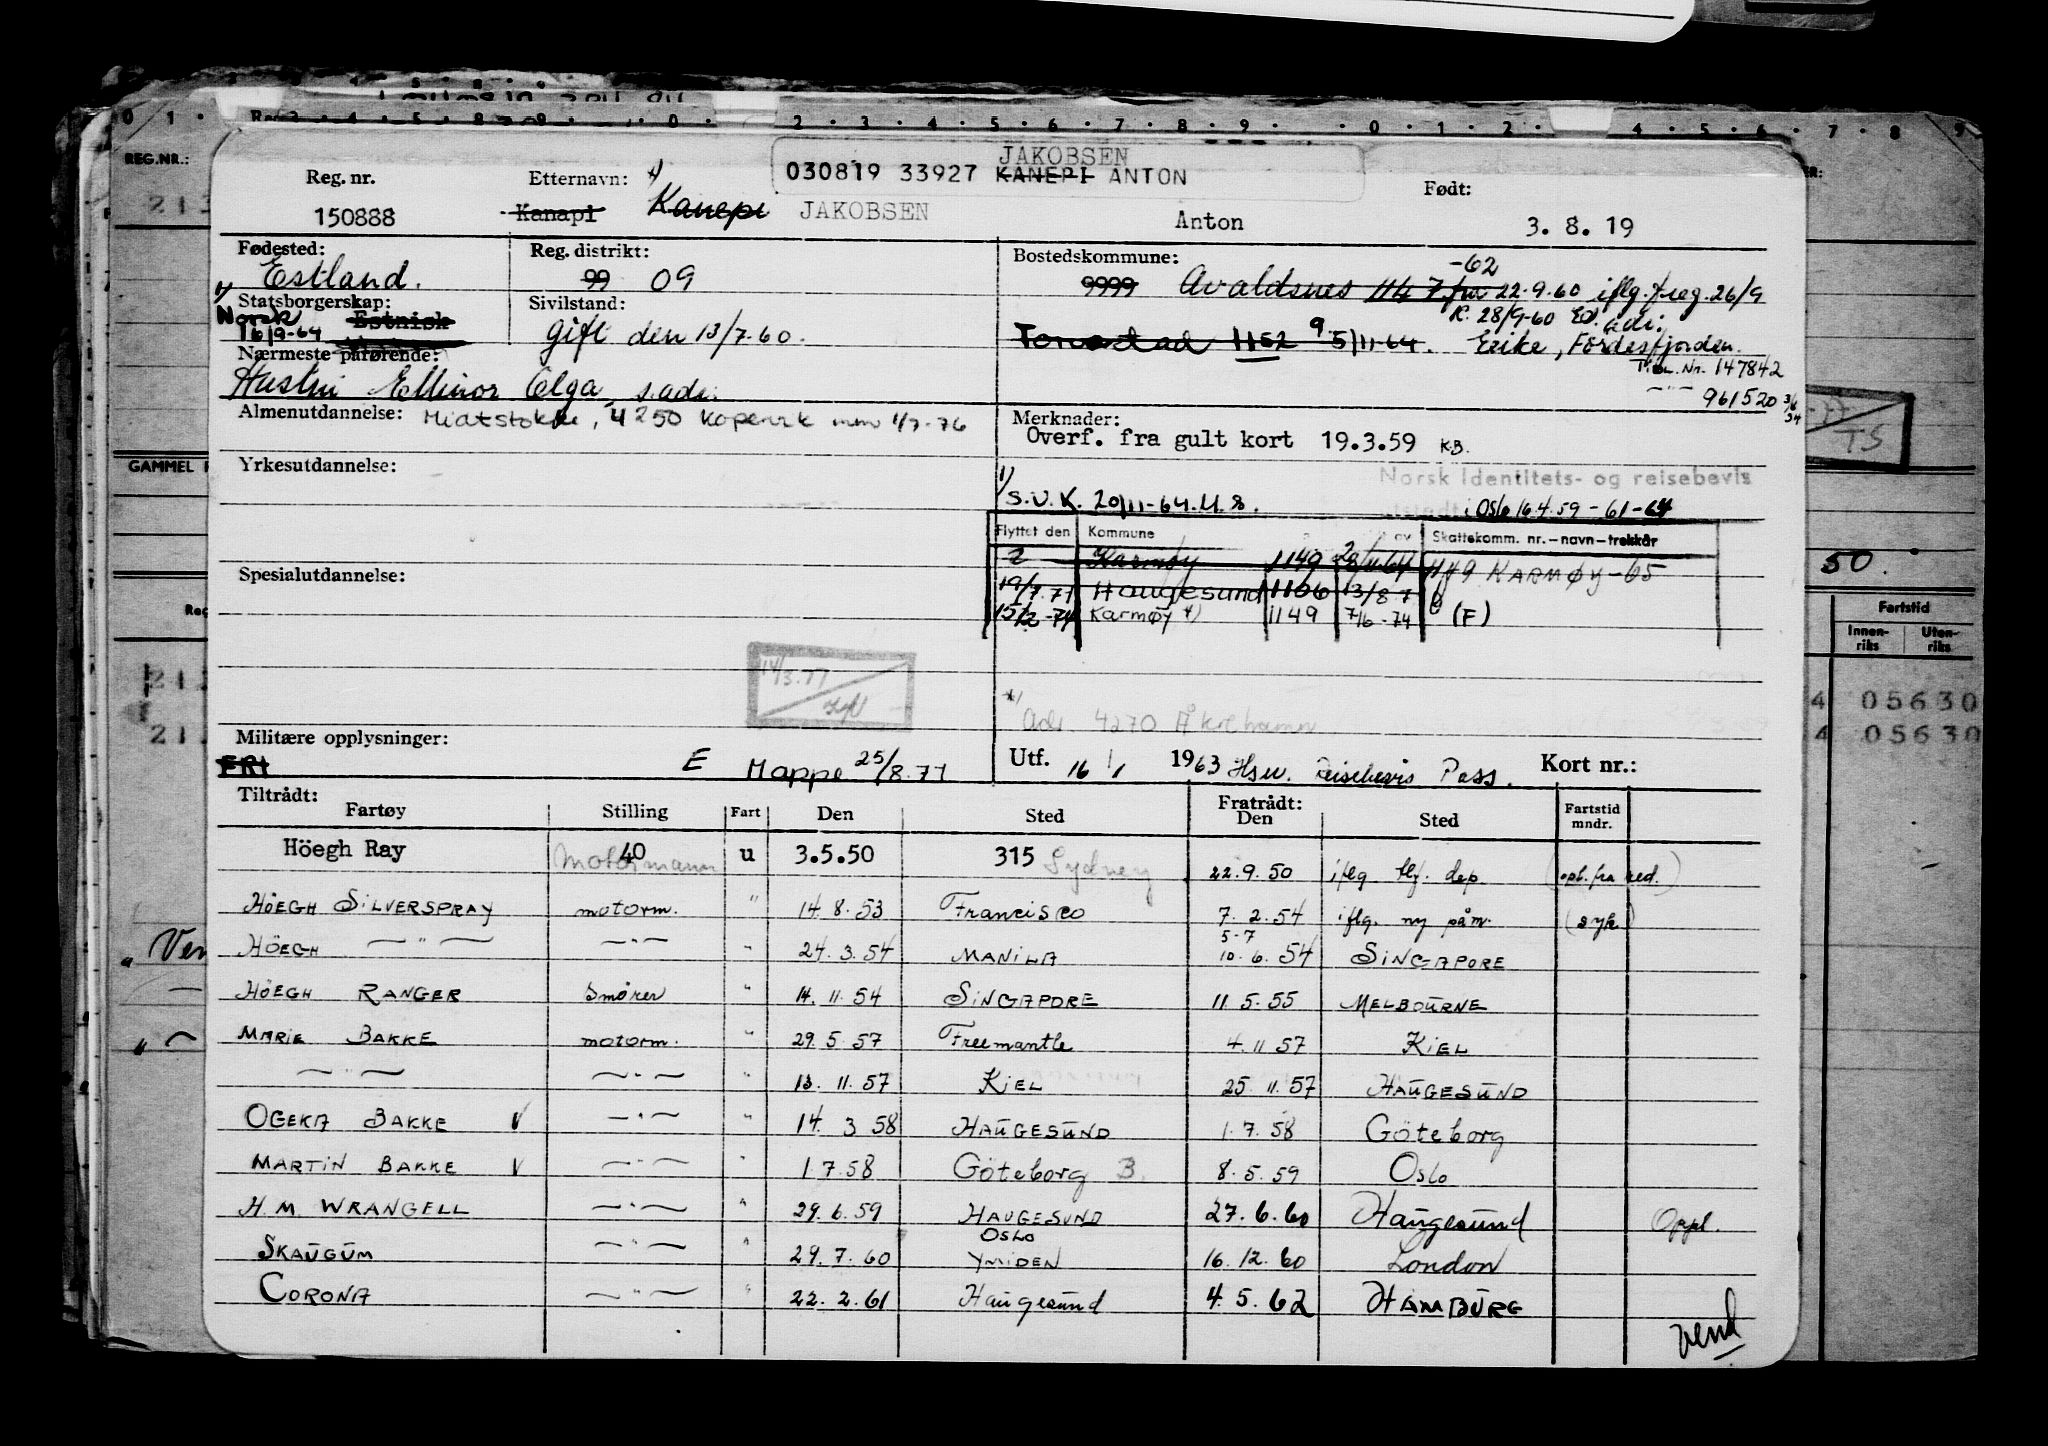 REG.NR.:
GAMMEL
JAKOBSEN
030819 33927 KANEPI ANTON
Reg. nr. Etternavn: Født:
150888 Kanapi Kanepi JAKOBSEN Anton 3. 8. 19
Fødested: Reg. distrikt: Bostedskommune: -62
Estland. 99 09 9999 Avaldsnes 1147 fra 22.9.60 iflg. freg. 26/9
Statsborgerskap: Sivilstand: K. 28/9-60
Norsk Estnisk
16/9-64 gift den 13/7.60. 1152 5/11-64. Erike, Førdesfjorden.
Nærmeste pårørende: Nr. 147842
Hustru Ellinor Olga, s.adr. 961520
Almenutdannelse: 4250 Kopervik 1/7-76 Merknader:
Overf. fra gult kort 19.3.59 KB.
Yrkesutdannelse:
Norsk Identitets- og reisebevis
S.U.K. 20/11-64. utstedt i Oslo 16.4.59 - 61 - 64
Flyttet den Kommune Skattekomm. nr.-navn-trekkår
2 Karmøy 1149 1149 KARMØY-65
Spesialutdannelse:
19/7.71 Haugesund 1106 13/8.7
15/2-74 Karmøy *) 1149 7/6-74 (F)
14/3.77
*)
Adr. 4270 Åkrehamn
Militære opplysninger:
FRI E Mappe 25/8.77 Utf. 16/1 1963 Hsu. Reisebevis Pass. Kort nr.:
Tiltrådt: Fratrådt:
Fartøy Stilling Fart Den Sted Den Sted Fartstid mndr.
Höegh Ray 40 Motormann u 3.5.50 315 Sydney 22.9.50 iflg. dep. (opl. fra red.)
HÖEGH SILVERSPRAY motorm. " 14.8.53 Francisco 7.2.54 iflg. ny påm. (syk)
HÖEGH — " — — " — " 24.3.54 MANILA 5-7 10.6.54 SINGAPORE
HÖEGH RANGER Smörer " 14.11.54 SINGAPORE 11.5.55 MELBOURNE
MARIE BAKKE motorm. " 29.5.57 Freemantle 4.11.57 KIEL
— " — — " — " 13.11.57 KIEL 25.11.57 HAUGESUND
OGEKA BAKKE V — " — " 14.3.58 HAUGESUND 1.7.58 Göteborg
MARTIN BAKKE V — " — " 1.7.58 Göteborg B. 8.5.59 Oslo
H. M WRANGELL — " — " 29.6.59 HAUGESUND 27.6.60 Haugesund Oppl.
OSLO
SKAUGUM — " — " 29.7.60 YMIDEN 16.12.60 London
CORONA — " — " 22.2.61 Haugesund 4.5.62 HAMBURG
vend
TS
50.
Fartstid
Innenriks Utenriks
4 05630
4 05630